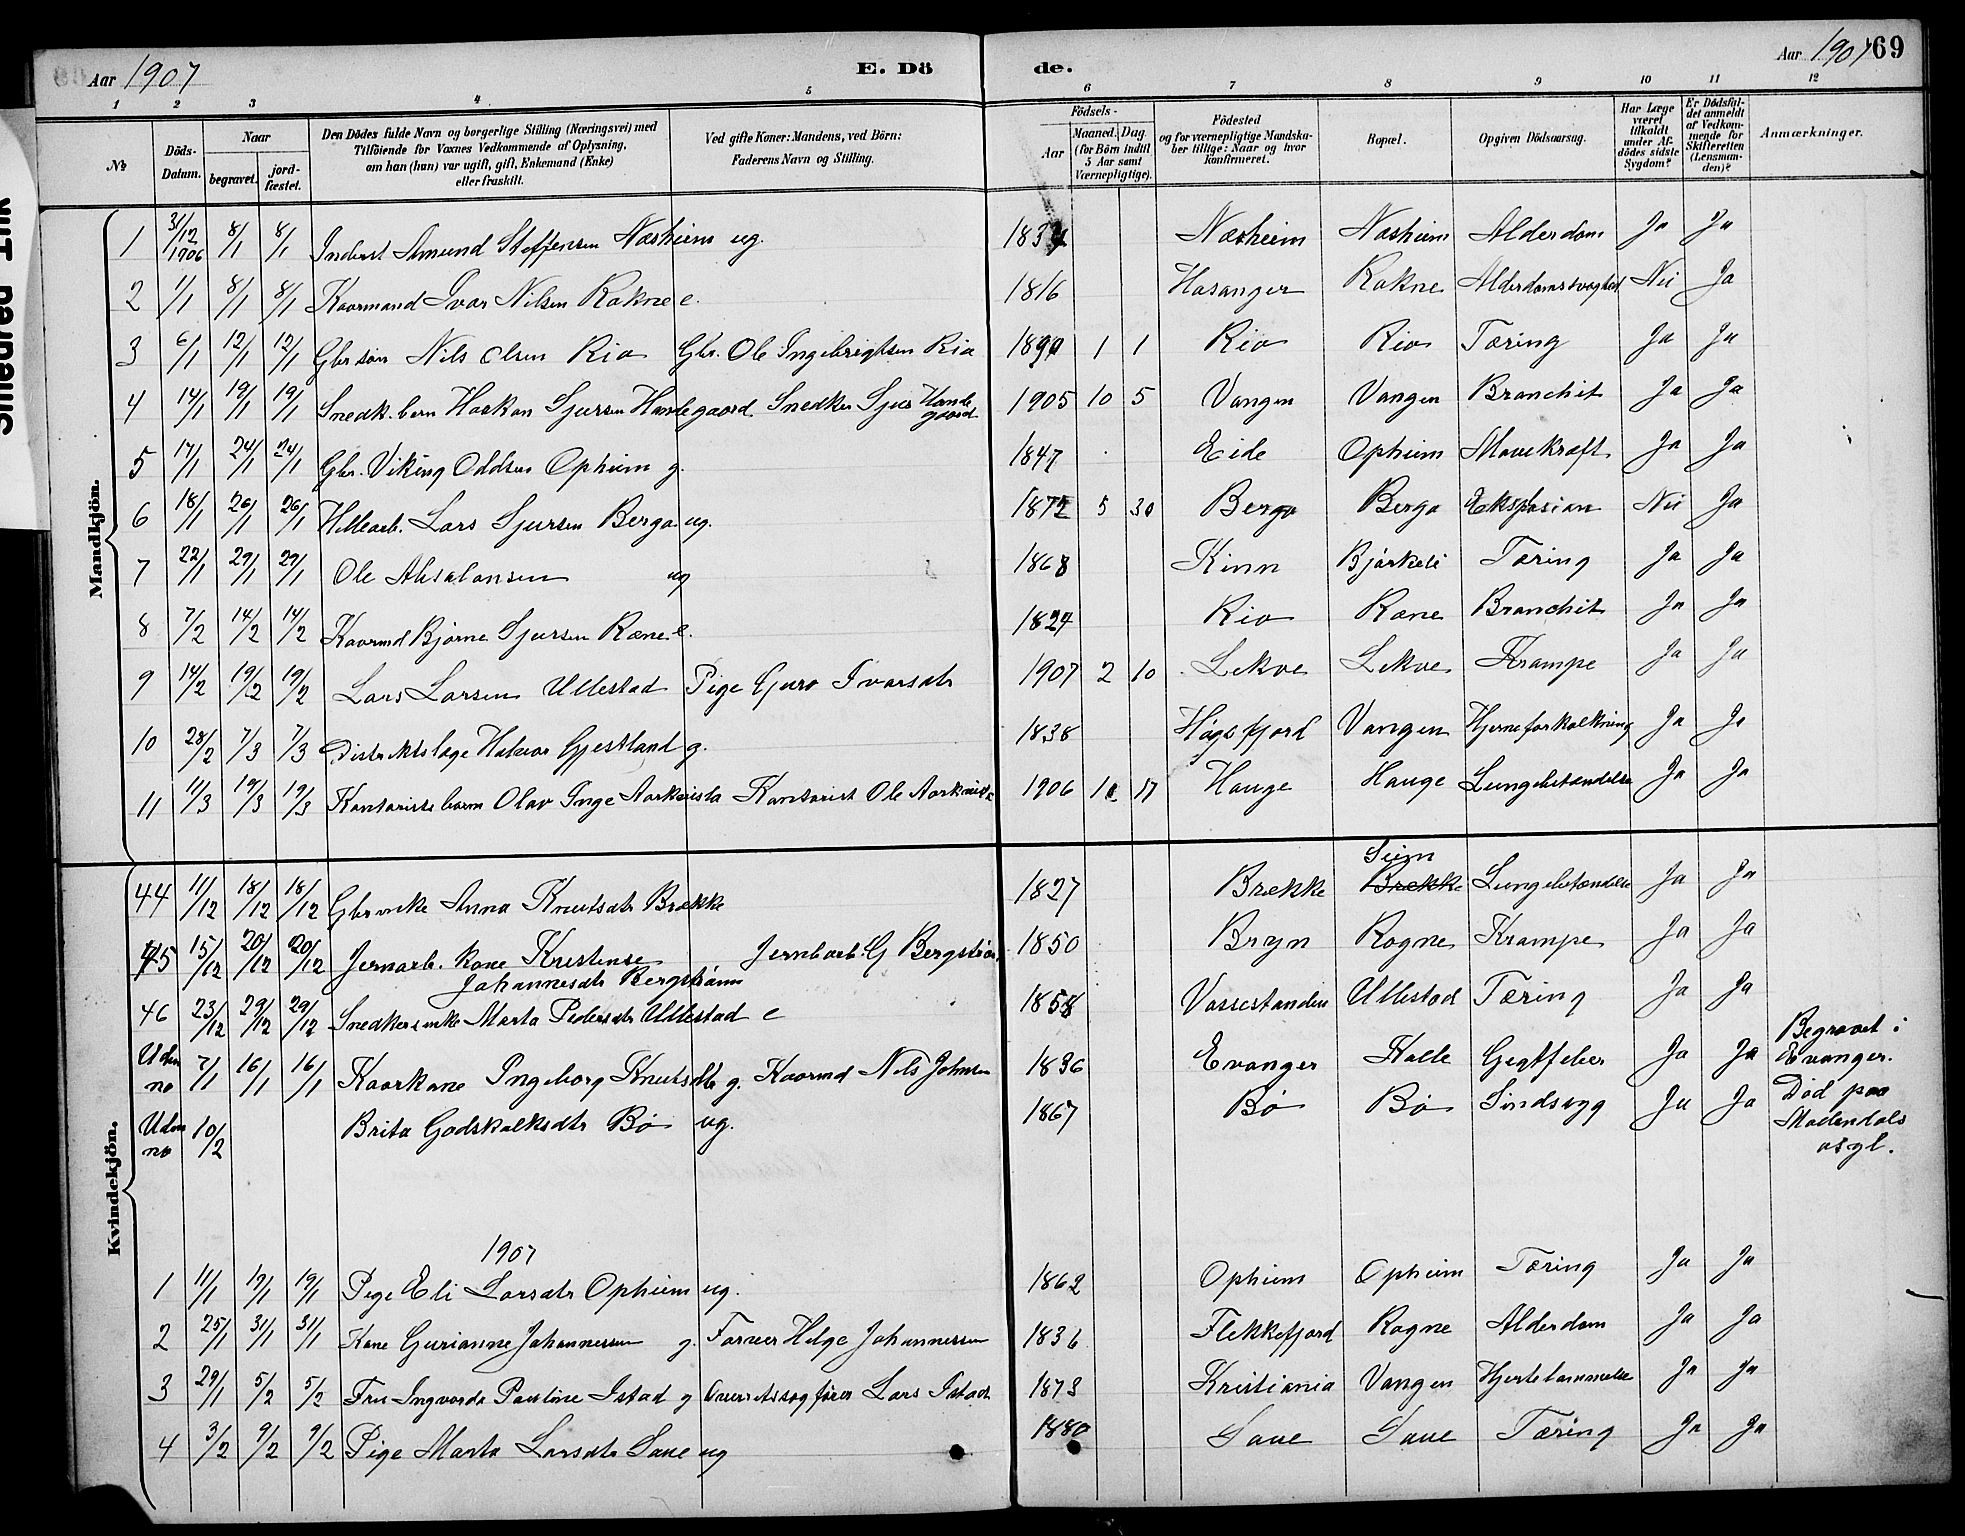 Aar 1907 E. Dö de. Aar 1907 69
1 2 3 4 5 6 7 8 9 10 11 12
No Döds-Datum. Naar begravet. jord-fæstet. Den Dödes fulde Navn og borgerlige Stilling (Næringsvei) med Tilföiende for Voxnes Vedkommende af Oplysning, om han (hun) var ugift, gift, Enkemand (Enke) eller fraskilt. Ved gifte Koner: Mandens, ved Börn: Faderens Navn og Stilling. Födsels- Aar Maaned. Dag. (for Börn indtil 5 Aar samt Værnepligtige). Födested og for værnepligtige Mandskaber tillige: Naar og hvor konfirmeret. Bopæl. Opgiven Dödsaarsag. Har Læge været tilkaldt under Afdödes sidste Sygdom? Er Dödsfaldet anmeldt af Vedkommende for Skifteretten (Lensmanden)? Anmærkninger.
Mandkjön.
1 31/12 1906 8/1 8/1 Inderst Amund Steffensen Næsheim ug. 1834 Næsheim Næsheim Alderdom Ja Ja
2 1/1 8/1 8/1 Kaarmand Ivar Nilsen Rokne e. 1816 Hosanger Rokne Alderdomssvaghed Nei Ja
3 6/1 12/1 12/1 Gbr søn Nils Olsen Rio Gbr. Ole Ingebrigtsen Rio 1890 1 1 Rio Rio Tæring Ja Ja
4 14/1 19/1 19/1 Snedk. barn Haakon Sjursen Handegaard Snedker Sjur Handegaard 1905 10 5 Vangen Vangen Bronchit Ja Ja
5 17/1 24/1 24/1 Gbr. Viking Oddsen Opheim g. 1847 Eide Opheim Mavekræft Ja Ja
6 18/1 26/1 26/1 Hellearb. Lars Sjursen Bergo ug. 1872 5 30 Bergo Bergo Eksplosion Nei Ja
7 22/1 29/1 29/1 Ole Absalonsen ug 1868 Kinn Bjørkeli Tæring Ja Ja
8 7/2 14/2 14/2 Kaarmd Bjørne Sjursen Rene e. 1824 Rio Rene Bronchit Ja Ja
9 14/2 19/2 19/2 Lars Larsen Ullestad Pige Guro Ivarsdtr 1907 2 10 Lekve Lekve Krampe Ja Ja
10 28/2 7/3 7/3 Distriktslæge Halvor Gjestland g. 1838 Høgsfjord Vangen Hjerneforkalkning Ja Ja
11 11/3 19/3 19/3 Kontorists barn Olav Inge Kontorist Ole 1906 10 17 Hauge Hauge Lungebetændelse Ja Ja
Kvindekjön.
44 11/12 18/12 18/12 Gbr enke Anna Knutsdtr Brekke 1827 Brekke Seim Brekke Lungebetændelse Ja Ja
45 15/12 20/12 20/12 Jernarb. kone Kristense Johannesdtr Bergstrøm Jernbarb. G Bergstrøm 1850 Bryn Rogne Krampe Ja Ja
46 23/12 29/12 29/12 Snedker enke Marta Pedersdtr Ullestad e 1858 Vossestanden Ullestad Tæring Ja Ja
Uden no 7/1 16/1 16/1 Kaarkone Ingeborg Knutsdtr g. Kaarmd Nils Johnsen 1836 Evanger Kalle Gigtfeber Ja Ja Begravet i Evanger.
Uden no 10/2 Brita Godskalksdtr Bø ug. 1867 Bø Bø Sindssyg Ja Ja Død paa Modendals asyl.
1907
1 11/1 19/1 19/1 Pige Eli Larsdtr Opheim ug. 1862 Opheim Opheim Tæring Ja Ja
2 25/1 31/1 31/1 Kone Gurianne Johannessen g. Farver Helge Johannessen 1836 Flekkefjord Rogne Alderdom Ja Ja
3 29/1 5/2 5/2 Fru Ingvarda Pauline Istad g Overretssagfører Lars Istad 1873 Kristiania Vangen Hjertelammelse Ja Ja
4 3/2 9/2 9/2 Pige Marta Larsdtr Saue ug 1880 Saue Saue Tæring Ja Ja